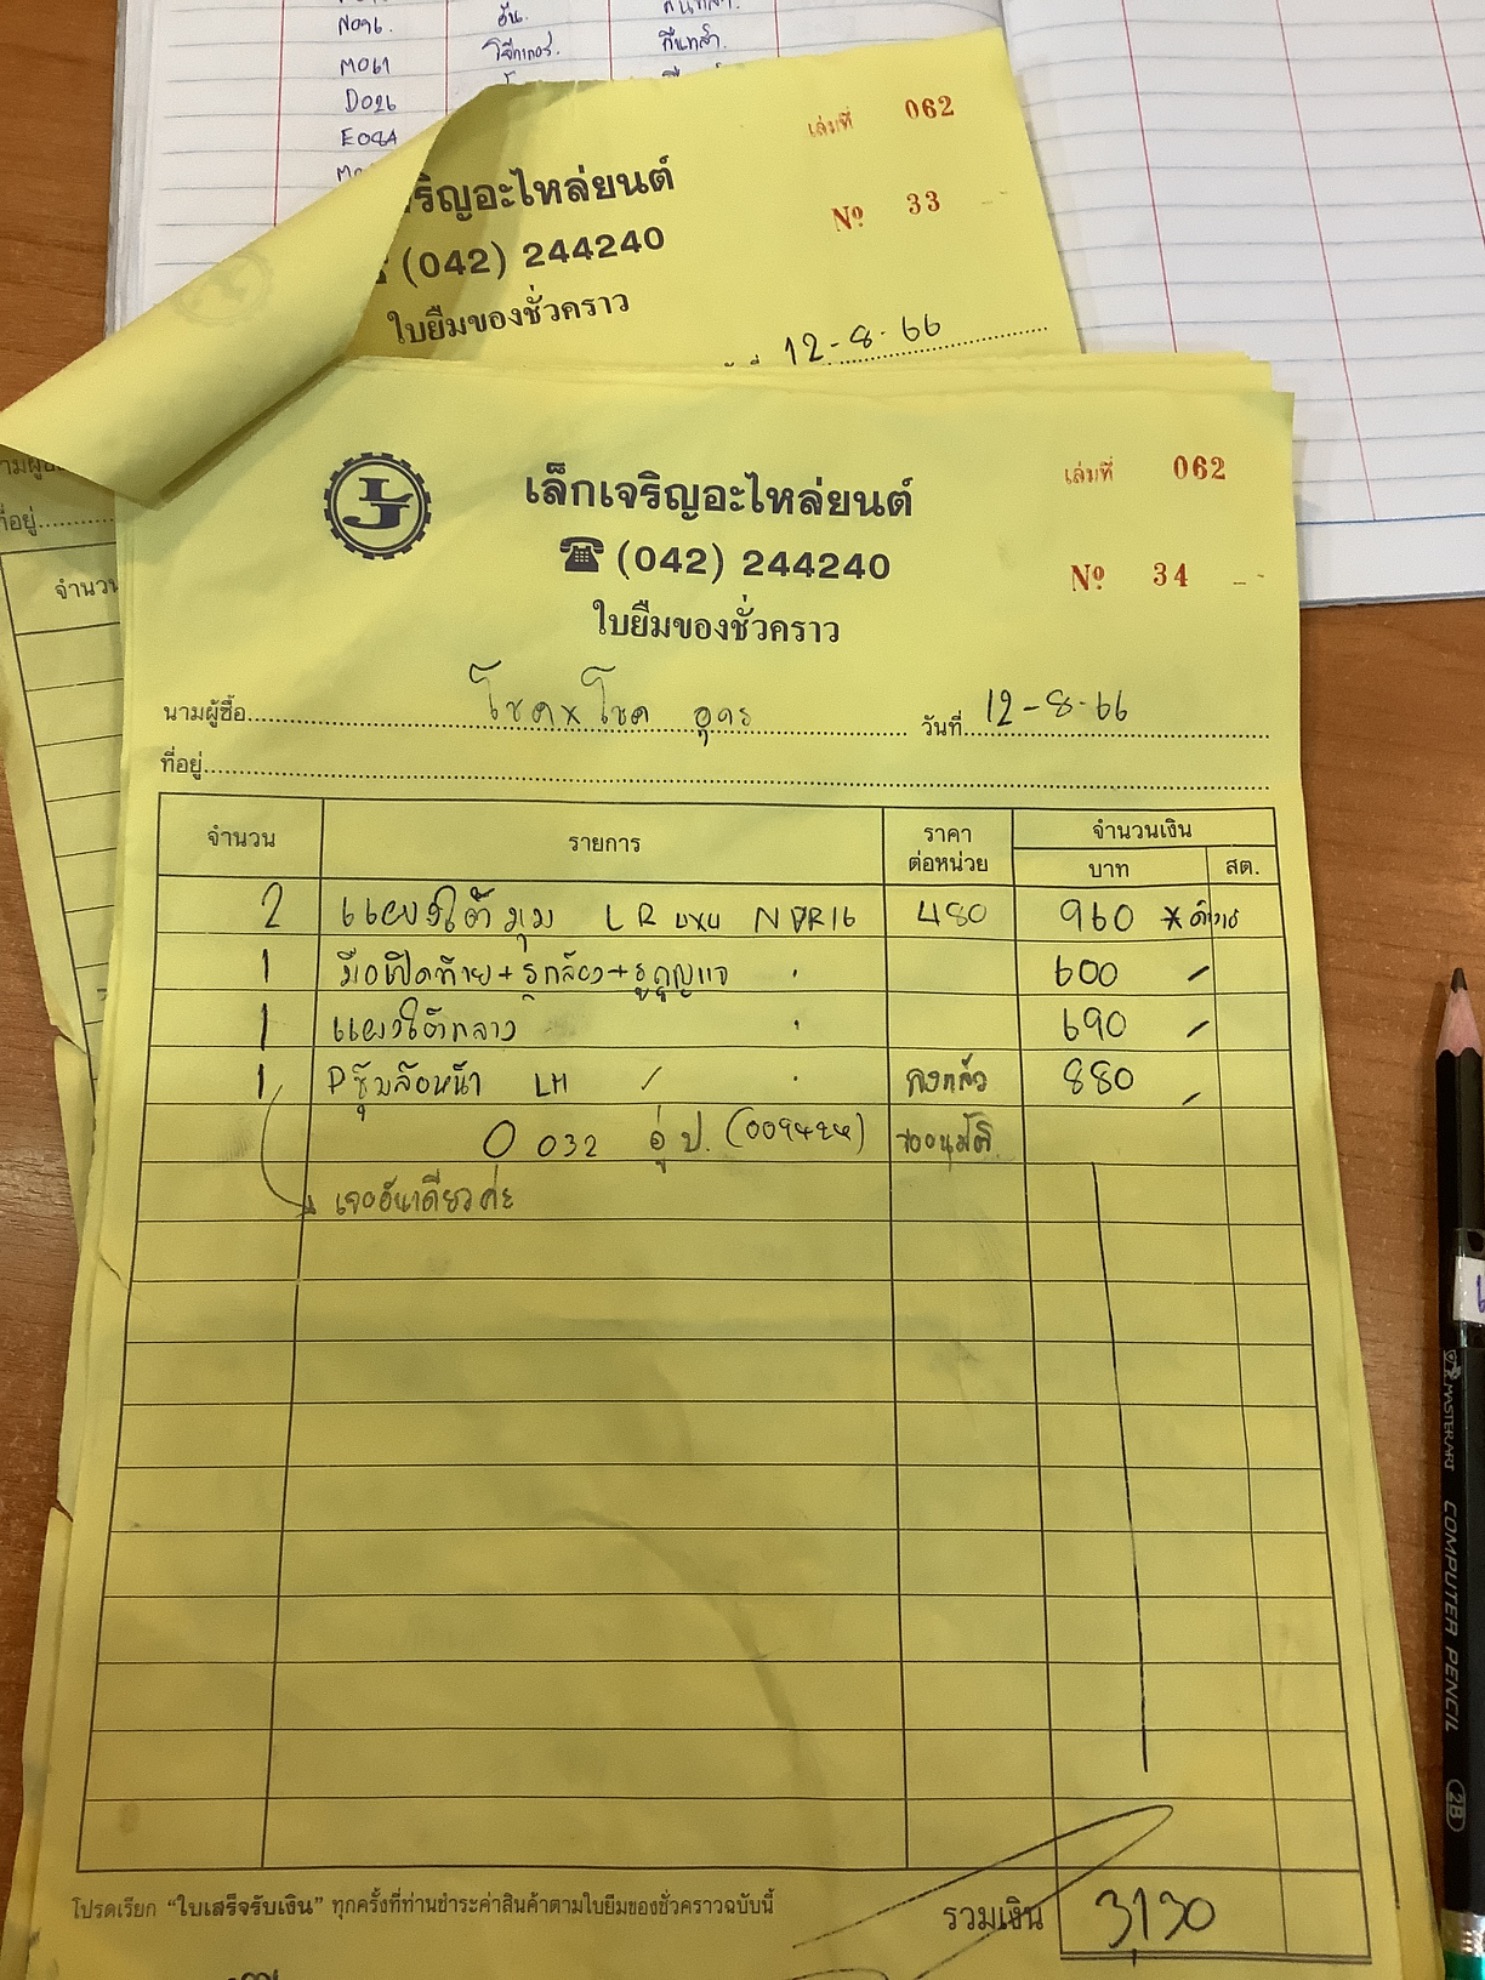 N096.
อั้น.
M061
โจ๊กเกอร์.
คืนหล้า.
D026
E08A
เล่มที่ 062
ริญอะไหล่ยนต์
Nº 33
(042) 244240
ใบยืมของชั่วคราว
12-8-66
ที่อยู่
จำนวน
เล็กเจริญอะไหล่ยนต์
เล่มที่ 062
☎ (042) 244240
Nº 34
ใบยืมของชั่วคราว
นามผู้ซื้อ โชค x โชค อุดร วันที่ 12-8-66
ที่อยู่
จำนวน รายการ ราคาต่อหน่วย จำนวนเงิน
บาท สต.
2 แผงใต้มุม LR NPR16 480 960
1 มือเปิดท้าย+รูกล้อง+รูกุญแจ 600 -
1 แผงใต้กลาง 690 -
1 Pซุ้มล้อหน้า LH / 880 -
0032 อู่ ป. รออนุมัติ
เจออันเดียวค่ะ
โปรดเรียก "ใบเสร็จรับเงิน" ทุกครั้งที่ท่านชำระค่าสินค้าตามใบยืมของชั่วคราวฉบับนี้
รวมเงิน 3,130
MASTERART COMPUTER PENCIL 2B